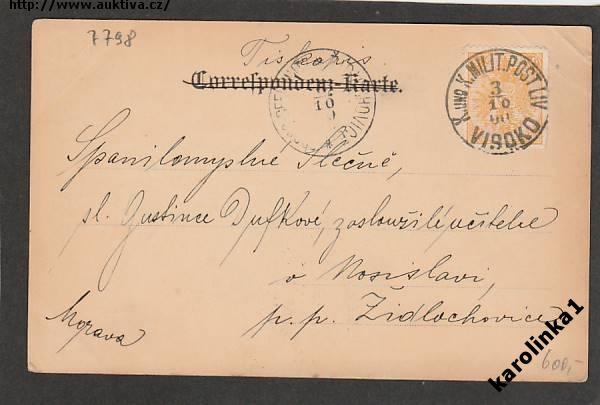 http://www.auktiva.cz/
7798
Tiskopis
Correspondenz-Karte.
K. UND K. MILIT. POST LIV
3
10
00
VISOKO
10
Spanilomyslné Slečně,
sl. Justince Dufkové, zasloužilé učitelce
v Nosislavi,
p. p. Židlochovice
Morava
600,-
karolinka1